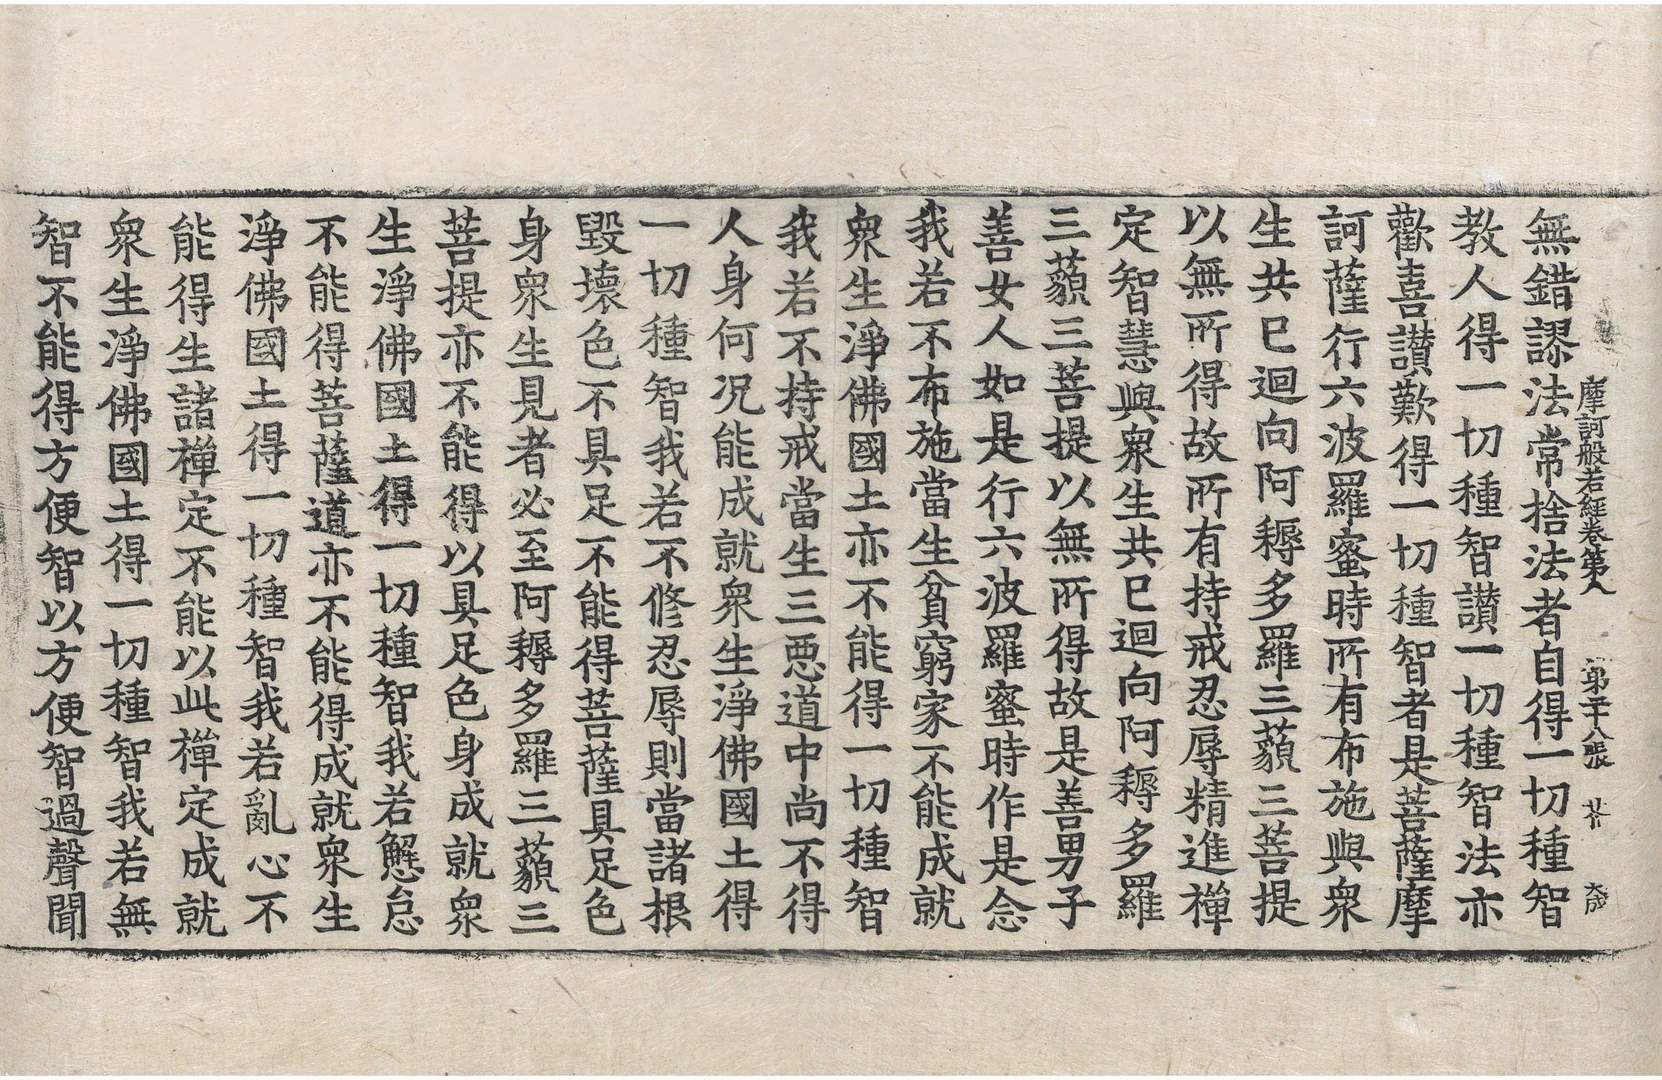 摩訶般若經卷第八 第二十八張 芥 大成
無錯謬法常捨法者自得一切種智
教人得一切種智讃一切種智法亦
歡喜讃歎得一切種智者是菩薩摩
訶薩行六波羅蜜時所有布施與衆
生共已迴向阿耨多羅三藐三菩提
以無所得故所有持戒忍辱精進禪
定智慧與衆生共已迴向阿耨多羅
三藐三菩提以無所得故是善男子
善女人如是行六波羅蜜時作是念
我若不布施當生貧窮家不能成就
衆生淨佛國土亦不能得一切種智
我若不持戒當生三惡道中尚不得
人身何況能成就衆生淨佛國土得
一切種智我若不修忍辱則當諸根
毀壞色不具足不能得菩薩具足色
身衆生見者必至阿耨多羅三藐三
菩提亦不能得以具足色身成就衆
生淨佛國土得一切種智我若懈怠
不能得菩薩道亦不能得成就衆生
淨佛國土得一切種智我若亂心不
能得生諸禪定不能以此禪定成就
衆生淨佛國土得一切種智我若無
智不能得方便智以方便智過聲聞